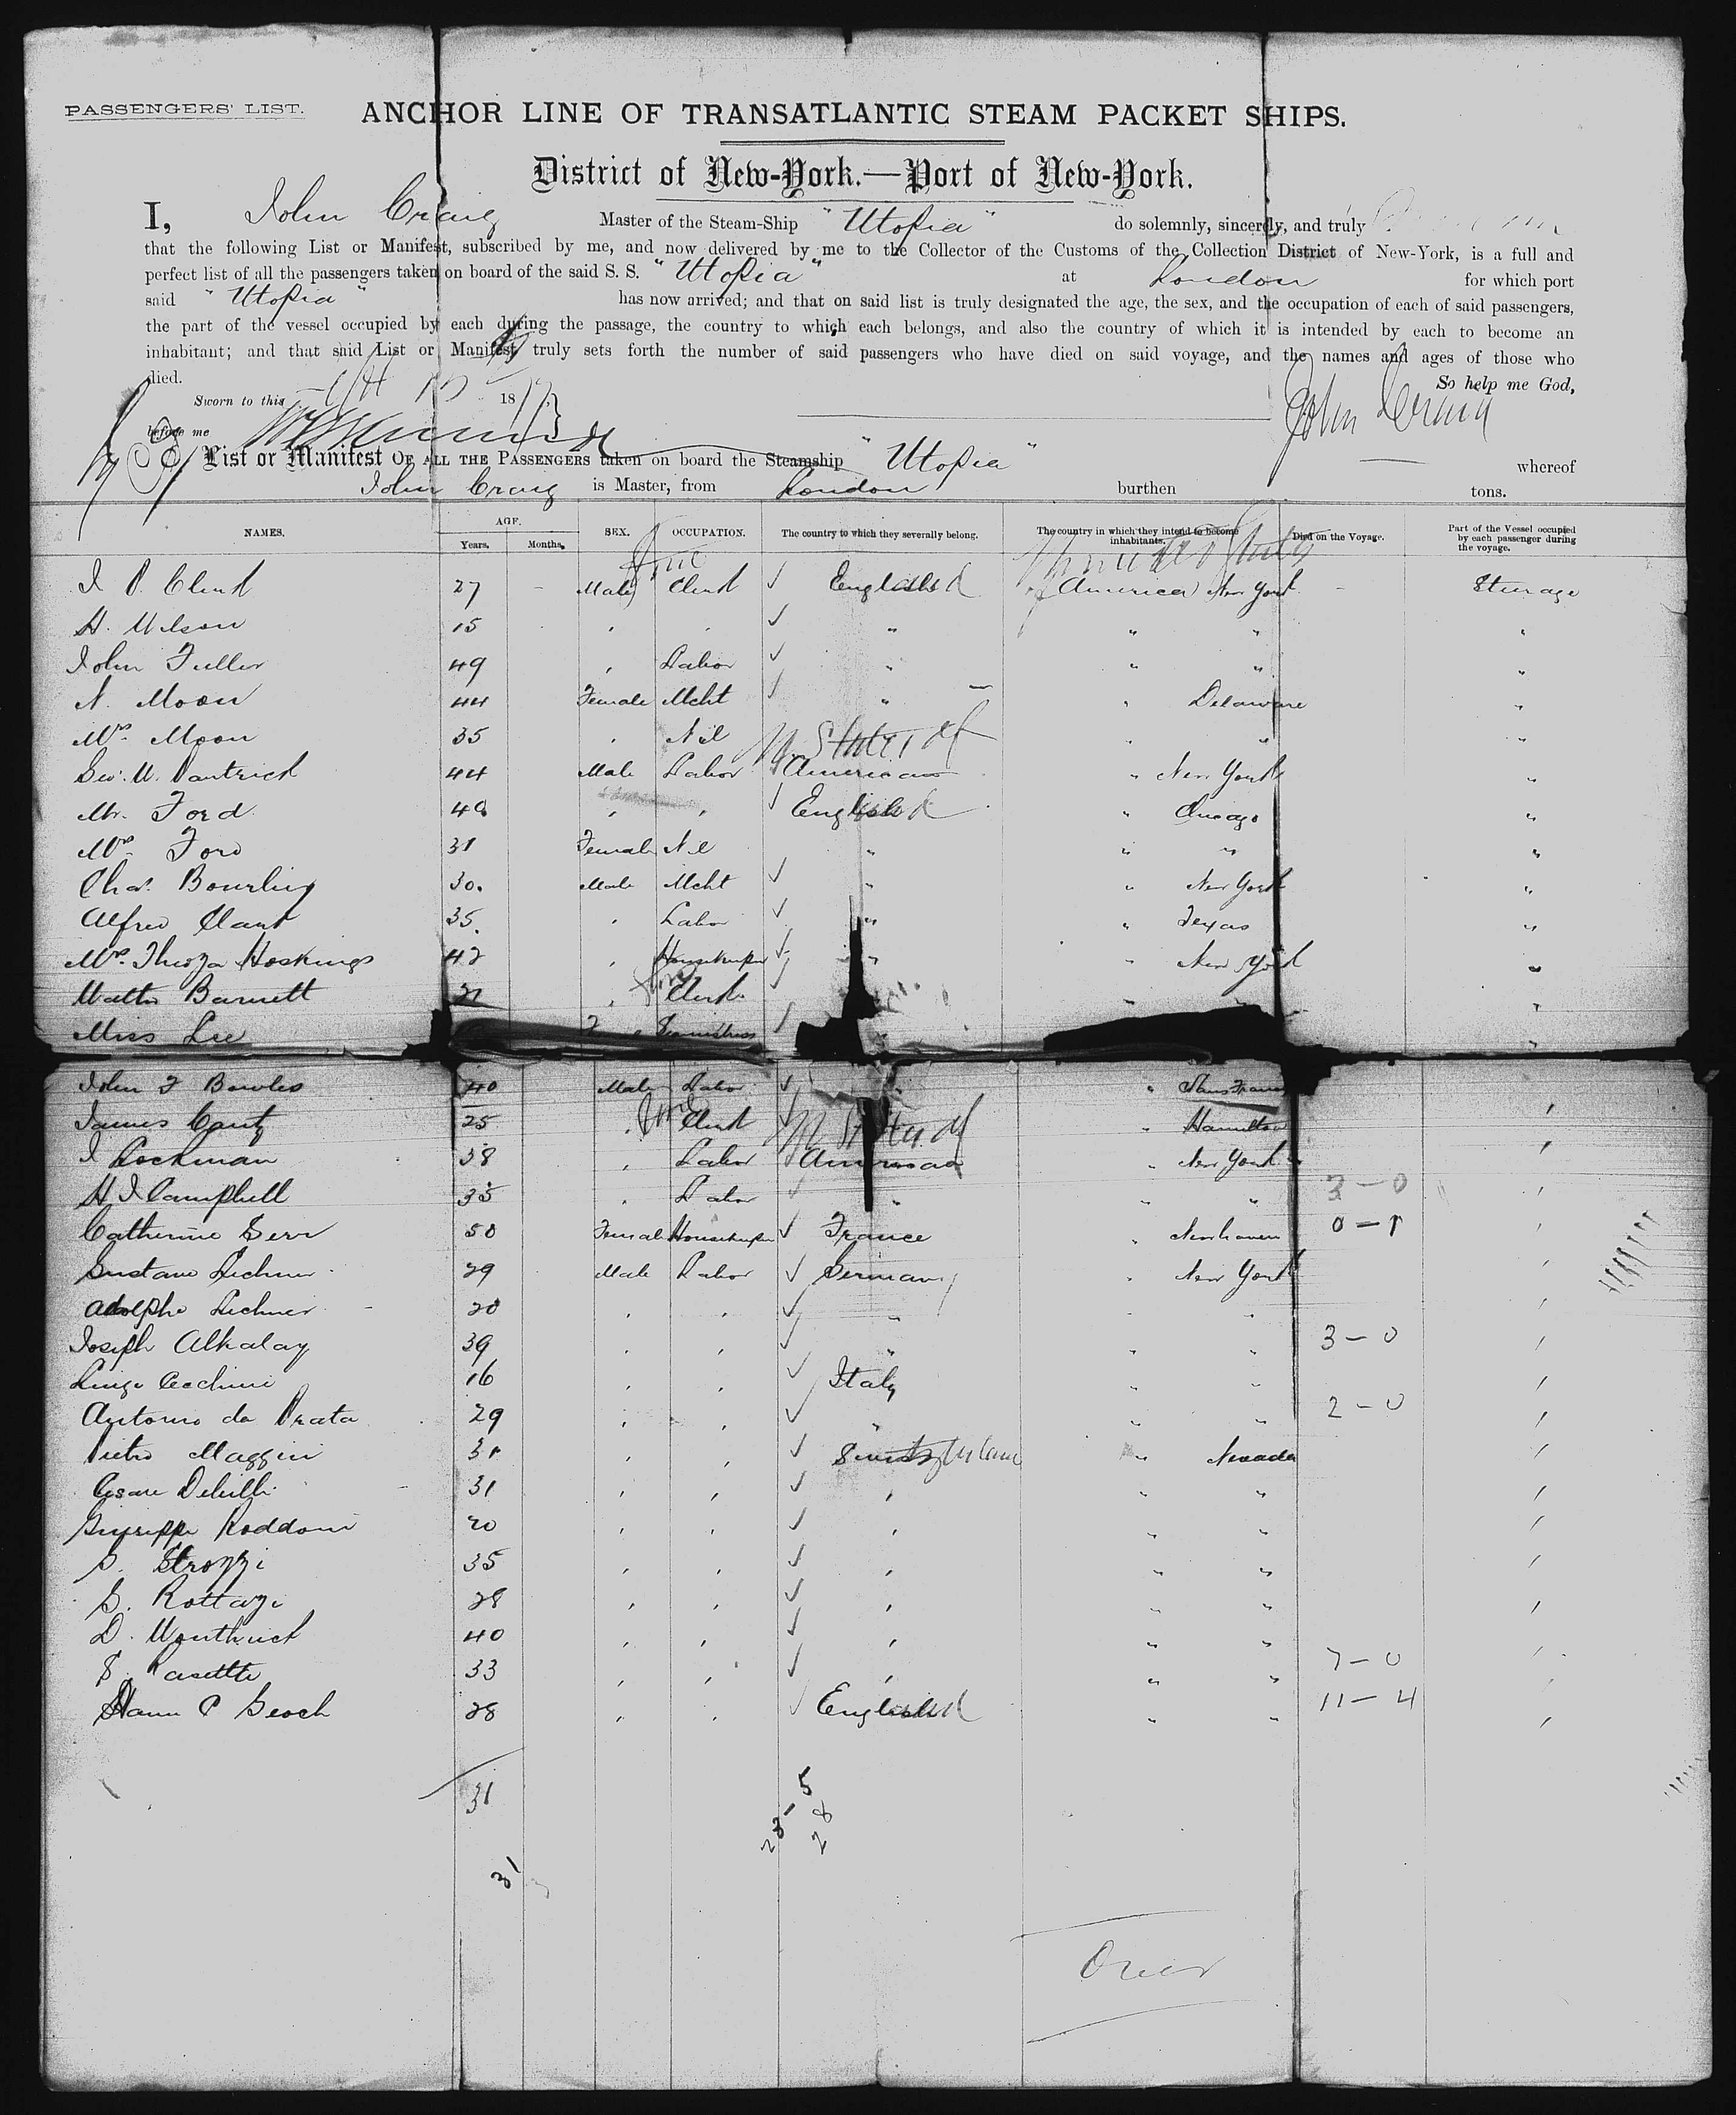 PASSENGERS' LIST.
ANCHOR LINE OF TRANSATLANTIC STEAM PACKET SHIPS.
District of New-York.—Port of New-York.
I, John Craig Master of the Steam-Ship "Utopia" do solemnly, sincerely, and truly
that the following List or Manifest, subscribed by me, and now delivered by me to the Collector of the Customs of the Collection District of New-York, is a full and
perfect list of all the passengers taken on board of the said S. S. "Utopia" at London for which port
said "Utopia" has now arrived; and that on said list is truly designated the age, the sex, and the occupation of each of said passengers,
the part of the vessel occupied by each during the passage, the country to which each belongs, and also the country of which it is intended by each to become an
inhabitant; and that said List or Manifest truly sets forth the number of said passengers who have died on said voyage, and the names and ages of those who
died. So help me God,
Sworn to this 18
before me John Craig
List or Manifest OF ALL THE PASSENGERS taken on board the Steamship "Utopia" whereof
John Craig is Master, from London burthen tons.
NAMES. AGE. Years. Months. SEX. OCCUPATION. The country to which they severally belong. The country in which they intend to become inhabitants. Died on the Voyage. Part of the Vessel occupied by each passenger during the voyage.
United States
27 Male Clerk England America New York Steerage
H. Wilson 15 , , " " " "
John Fuller 49 , Labor " " " "
N. Moon 44 Female Mcht " " Delaware "
Mrs. Moon 35 , Nil " " "
U. States of
Geo. W. 44 Male Labor American " New York "
Mr. Ford , , England " Chicago "
Mrs. Ford 31 Female Nil " " " "
Chas. Bowrling 30. Male Mcht " " New York "
Alfred 35. , Labor " " Texas "
Mrs. Hoskings 42 , Housekeeper " " New York "
Walter Barnett 21 , Clerk " " " "
Miss Lee Seamstress "
John F Bowles 40 Male Labor " "
James 25 , Clerk " Hamilton ,
U. States of
I Lockman 38 , Labor American " New York ,
H I Campbell 35 , Labor " " " 3–0 ,
Catherine 50 Female Housekeeper France " Newhaven 0–1 ,
Gustave Lechner 29 Male Labor Germany " New York ,
Adolphe Lechner 20 , , " " " ,
Joseph Alkalay 39 , , " " " 3–0 ,
Luigi Cecchini 16 , , Italy " " ,
Antonio da Prata 29 , , " " " 2–0 ,
Pietro Maggini 31 , , Switzerland " Nevada ,
Cesare 31 , , , " " ,
Giuseppe Roddoni 20 , , , " " ,
Strozzi 35 , , , " " ,
G. Rottazi 28 , , , " " ,
D. 40 , , , " " ,
33 , , , " " 7–0 ,
28 , , England " " 11–4 ,
31
23–5
28
31
Over